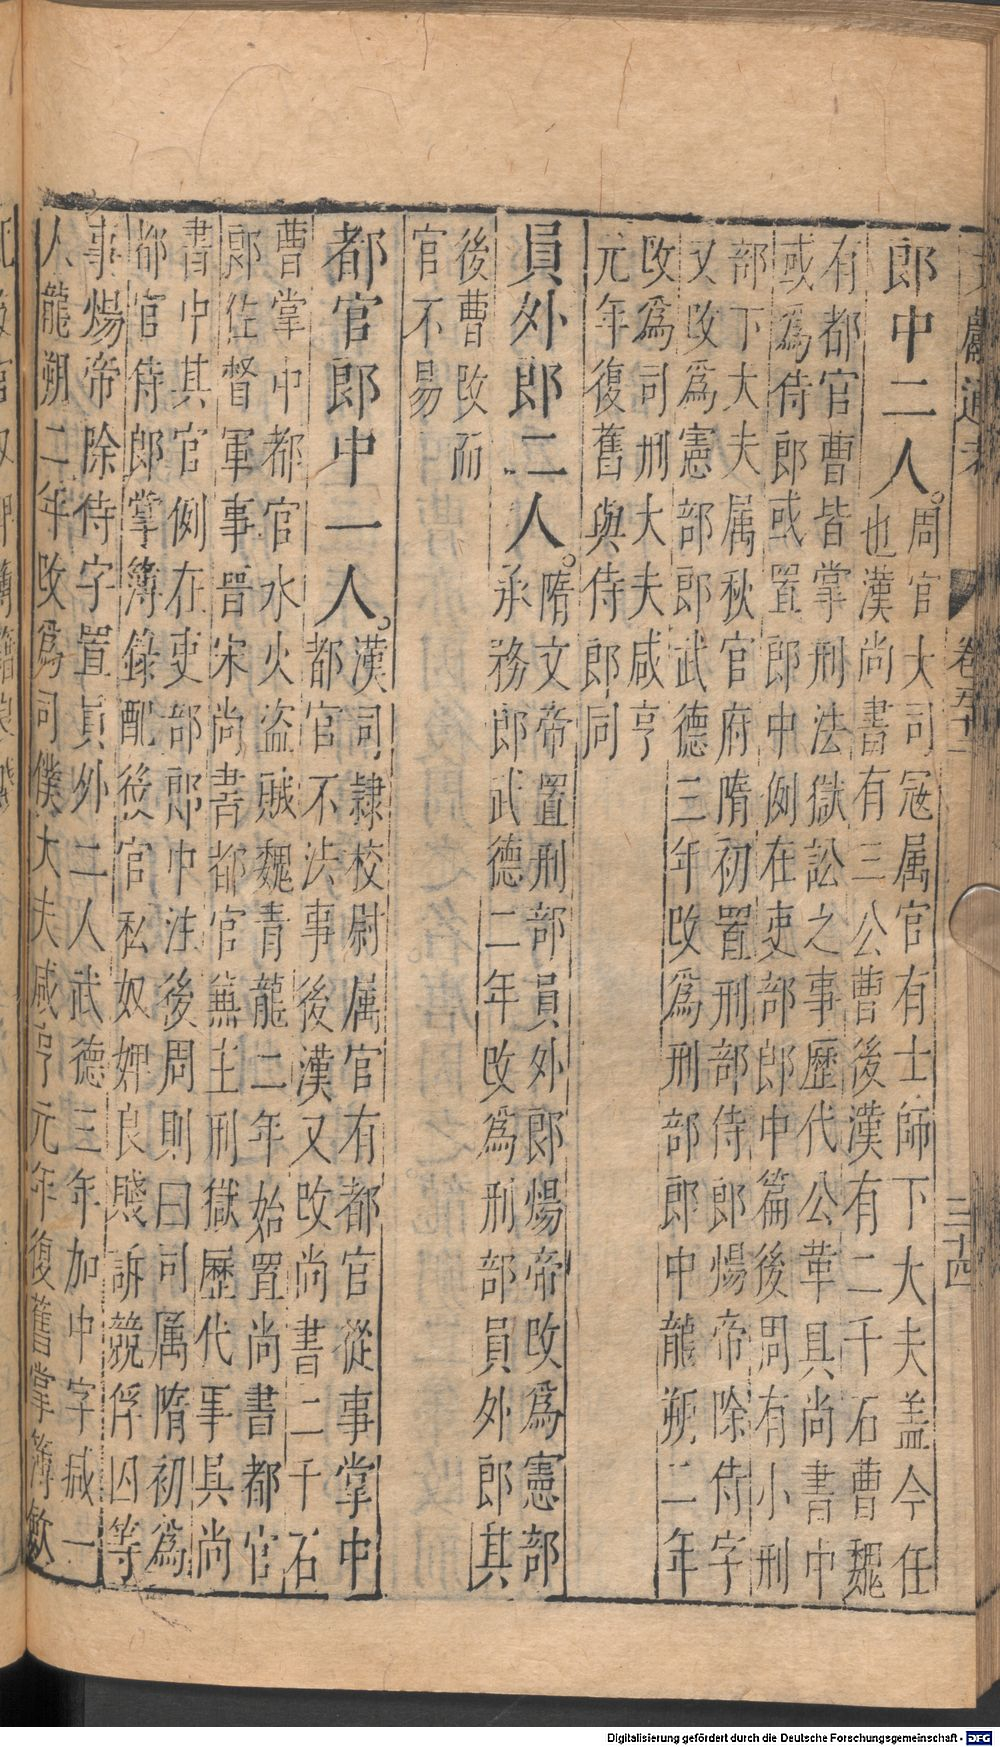 文獻通考 卷五十二 三十四
郎中二人。周官大司冦属官有士師下大夫盖今任
也漢尚書有三公曹後漢有二千石曹魏
有都官曹皆掌刑法獄訟之事歷代公革具尚書中
或為侍郎或置郎中例在吏部郎中篇後周有小刑
部下大夫属秋官府隋初置刑部侍郎煬帝除侍字
又攺為憲部郎武德三年攺為刑部郎中龍朔二年
攺為司刑大夫咸亨
元年復舊與侍郎同
員外郎二人。隋文帝置刑部員外郎煬帝攺為憲部
承務郎武德二年攺為刑部員外郎其
後曹攺而
官不易
都官郎中一人。漢司隷校尉属官有都官從事掌中
都官不法事後漢又攺尚書二千石
曹掌中都官水火盗賊魏青龍二年始置尚書都官
郎佐督軍事晋宋尚書都官兼主刑獄歷代事具尚
書中其官例在吏部郎中注後周則曰司属隋初為
都官侍郎掌簿錄配役官私奴婢良賤訴競俘囚等
事煬帝除侍字置員外二人武德三年加中字减一
人龍朔二年攺為司僕大夫咸亨元年復舊掌簿歛
Digitalisierung gefördert durch die Deutsche Forschungsgemeinschaft - DFG